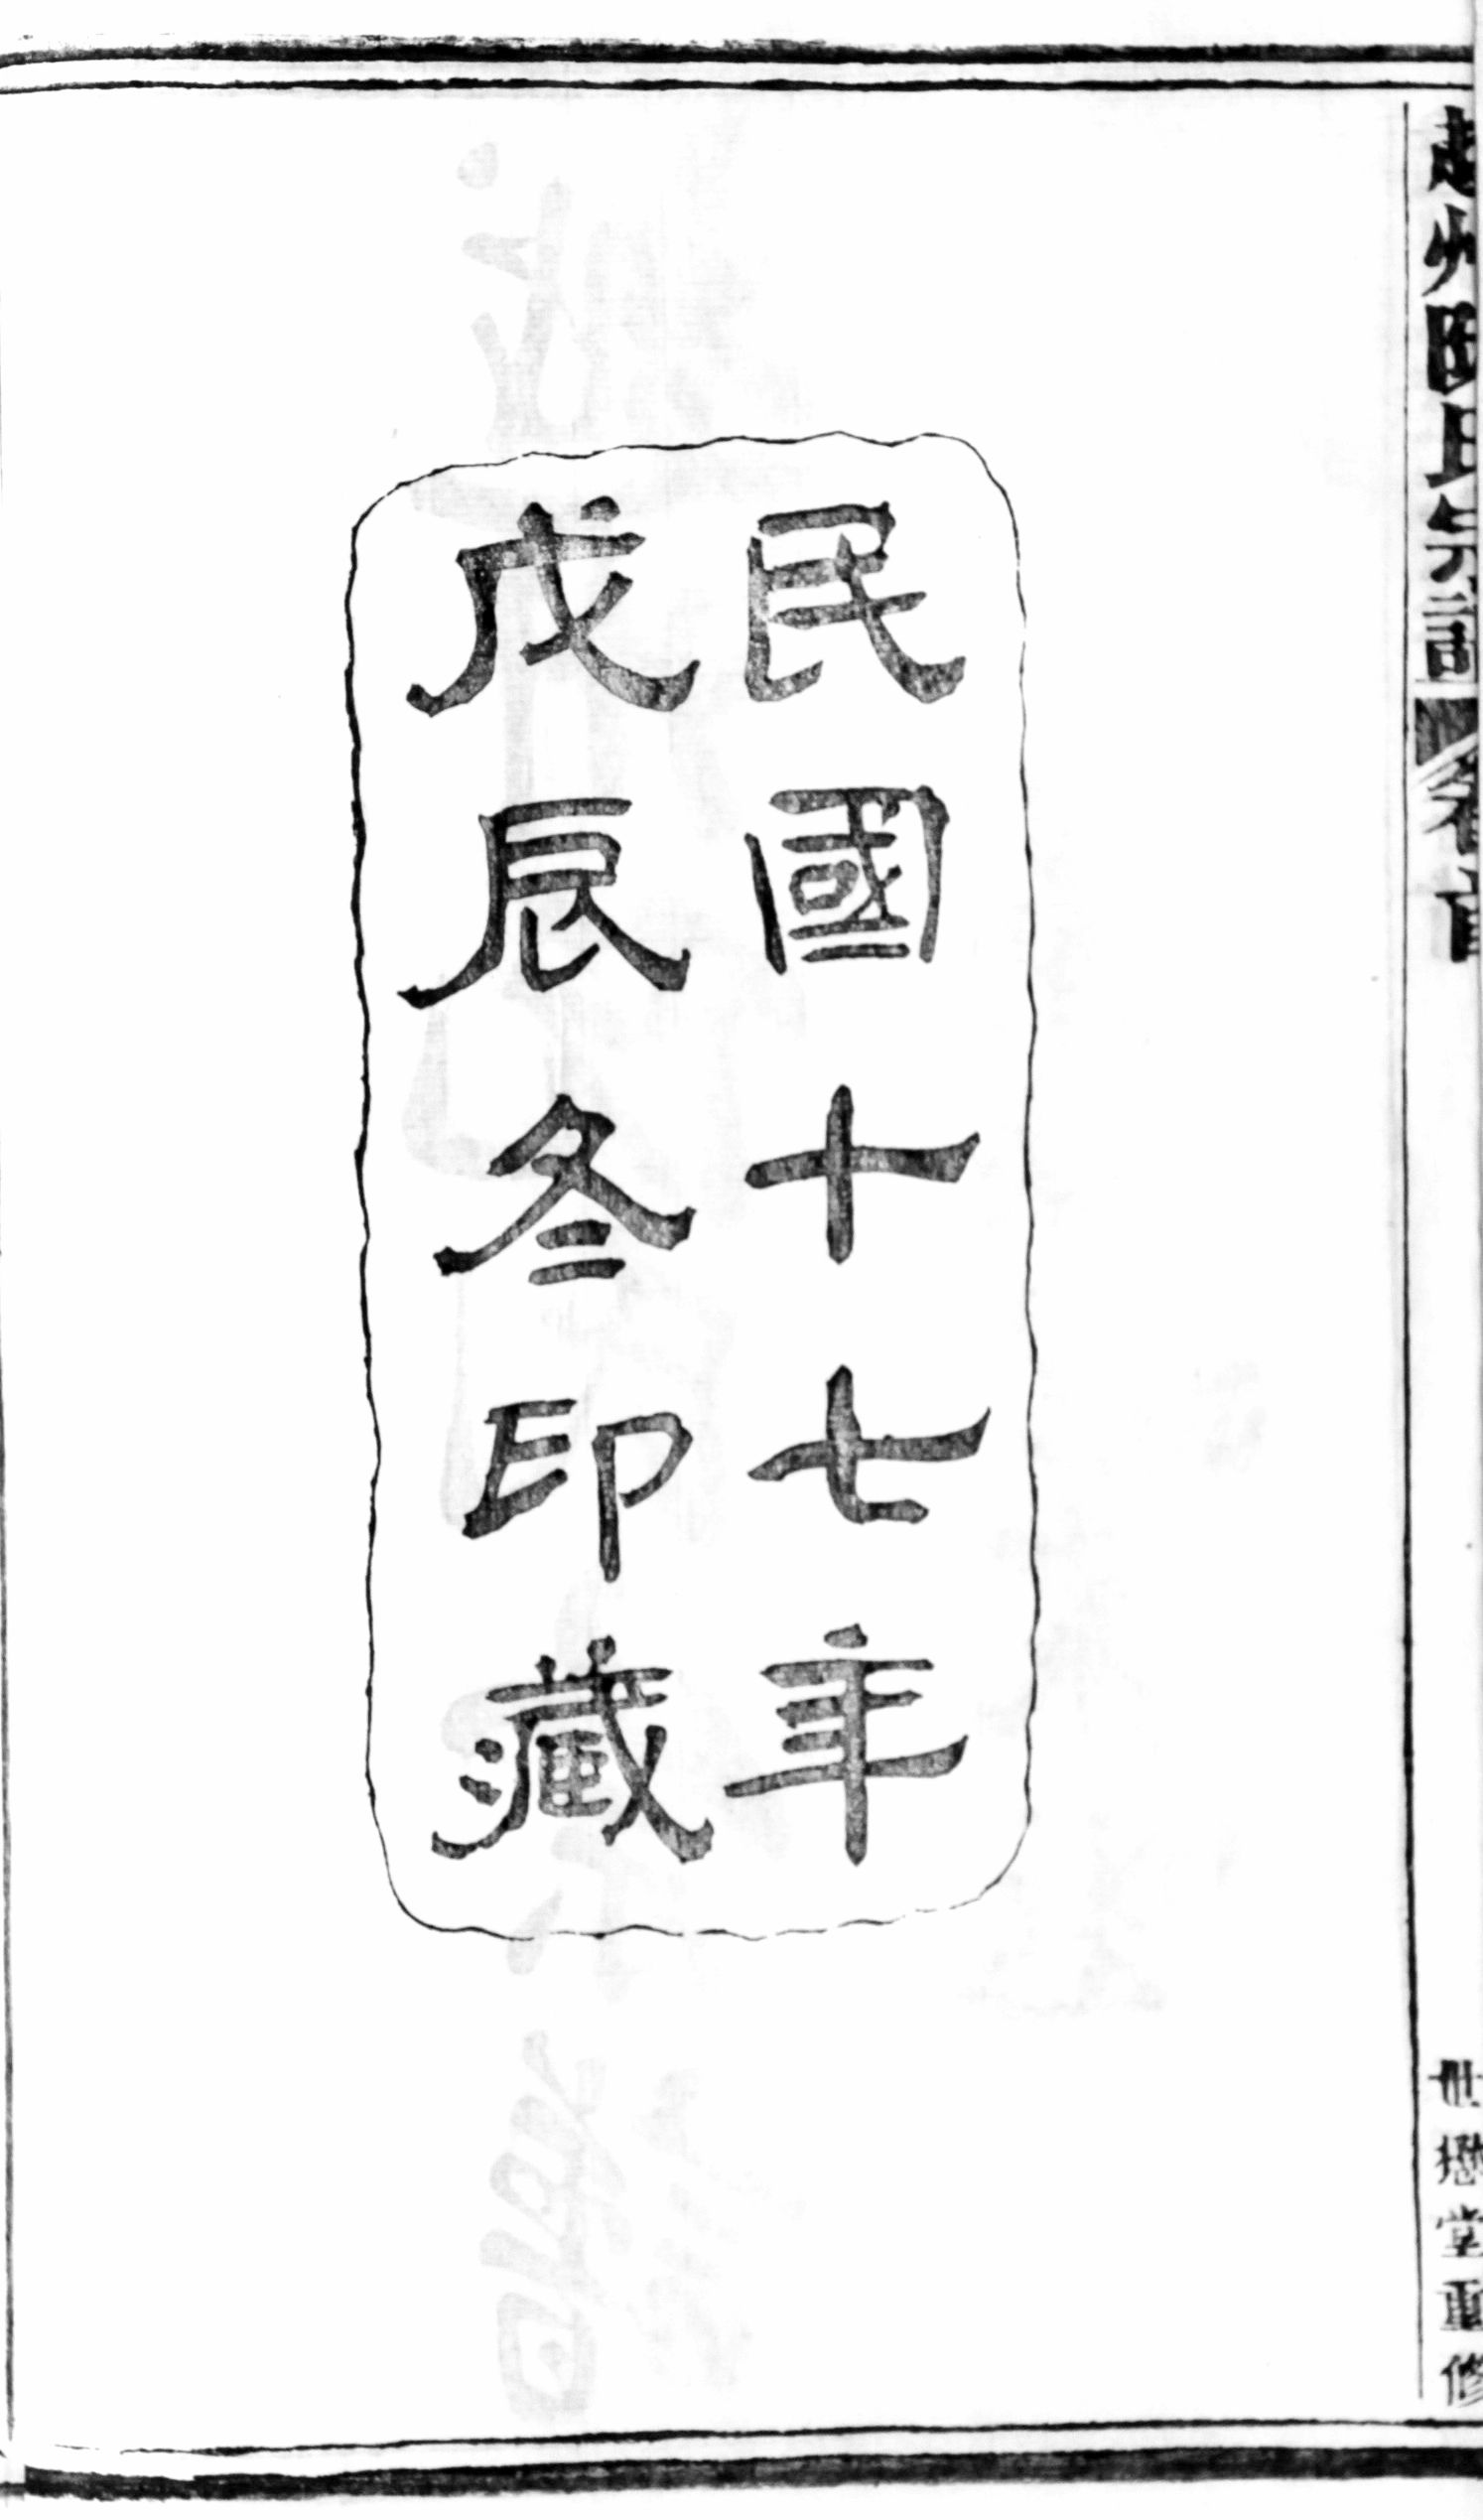 民國十七年
戊辰冬印藏
氏宗譜
卷首
世懋堂重修